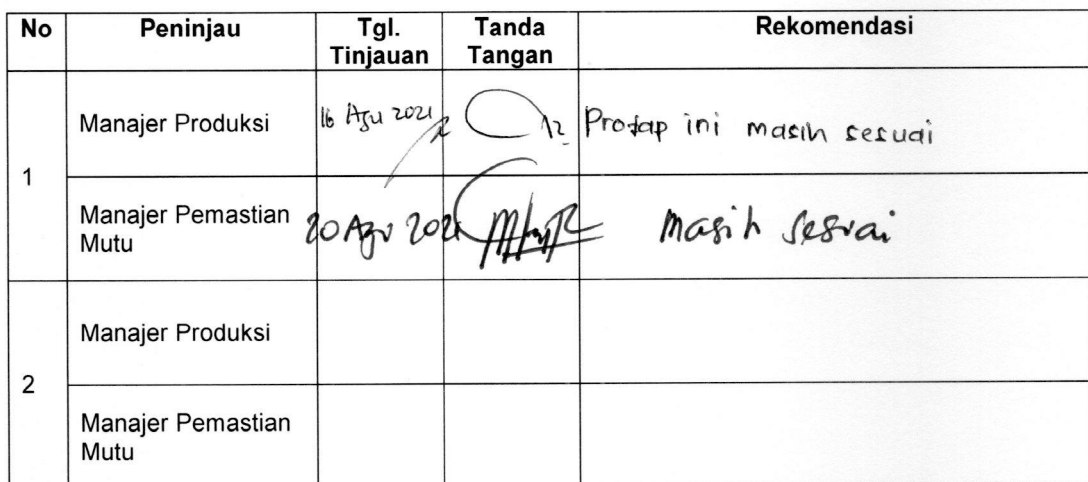 No Peninjau Tgl. Tinjauan Tanda Tangan Rekomendasi
1
Manajer Produksi 16 Agu 2021 Protap ini masih sesuai
Manajer Pemastian Mutu 20 Agu 2021 masih sesuai
2
Manajer Produksi
Manajer Pemastian Mutu